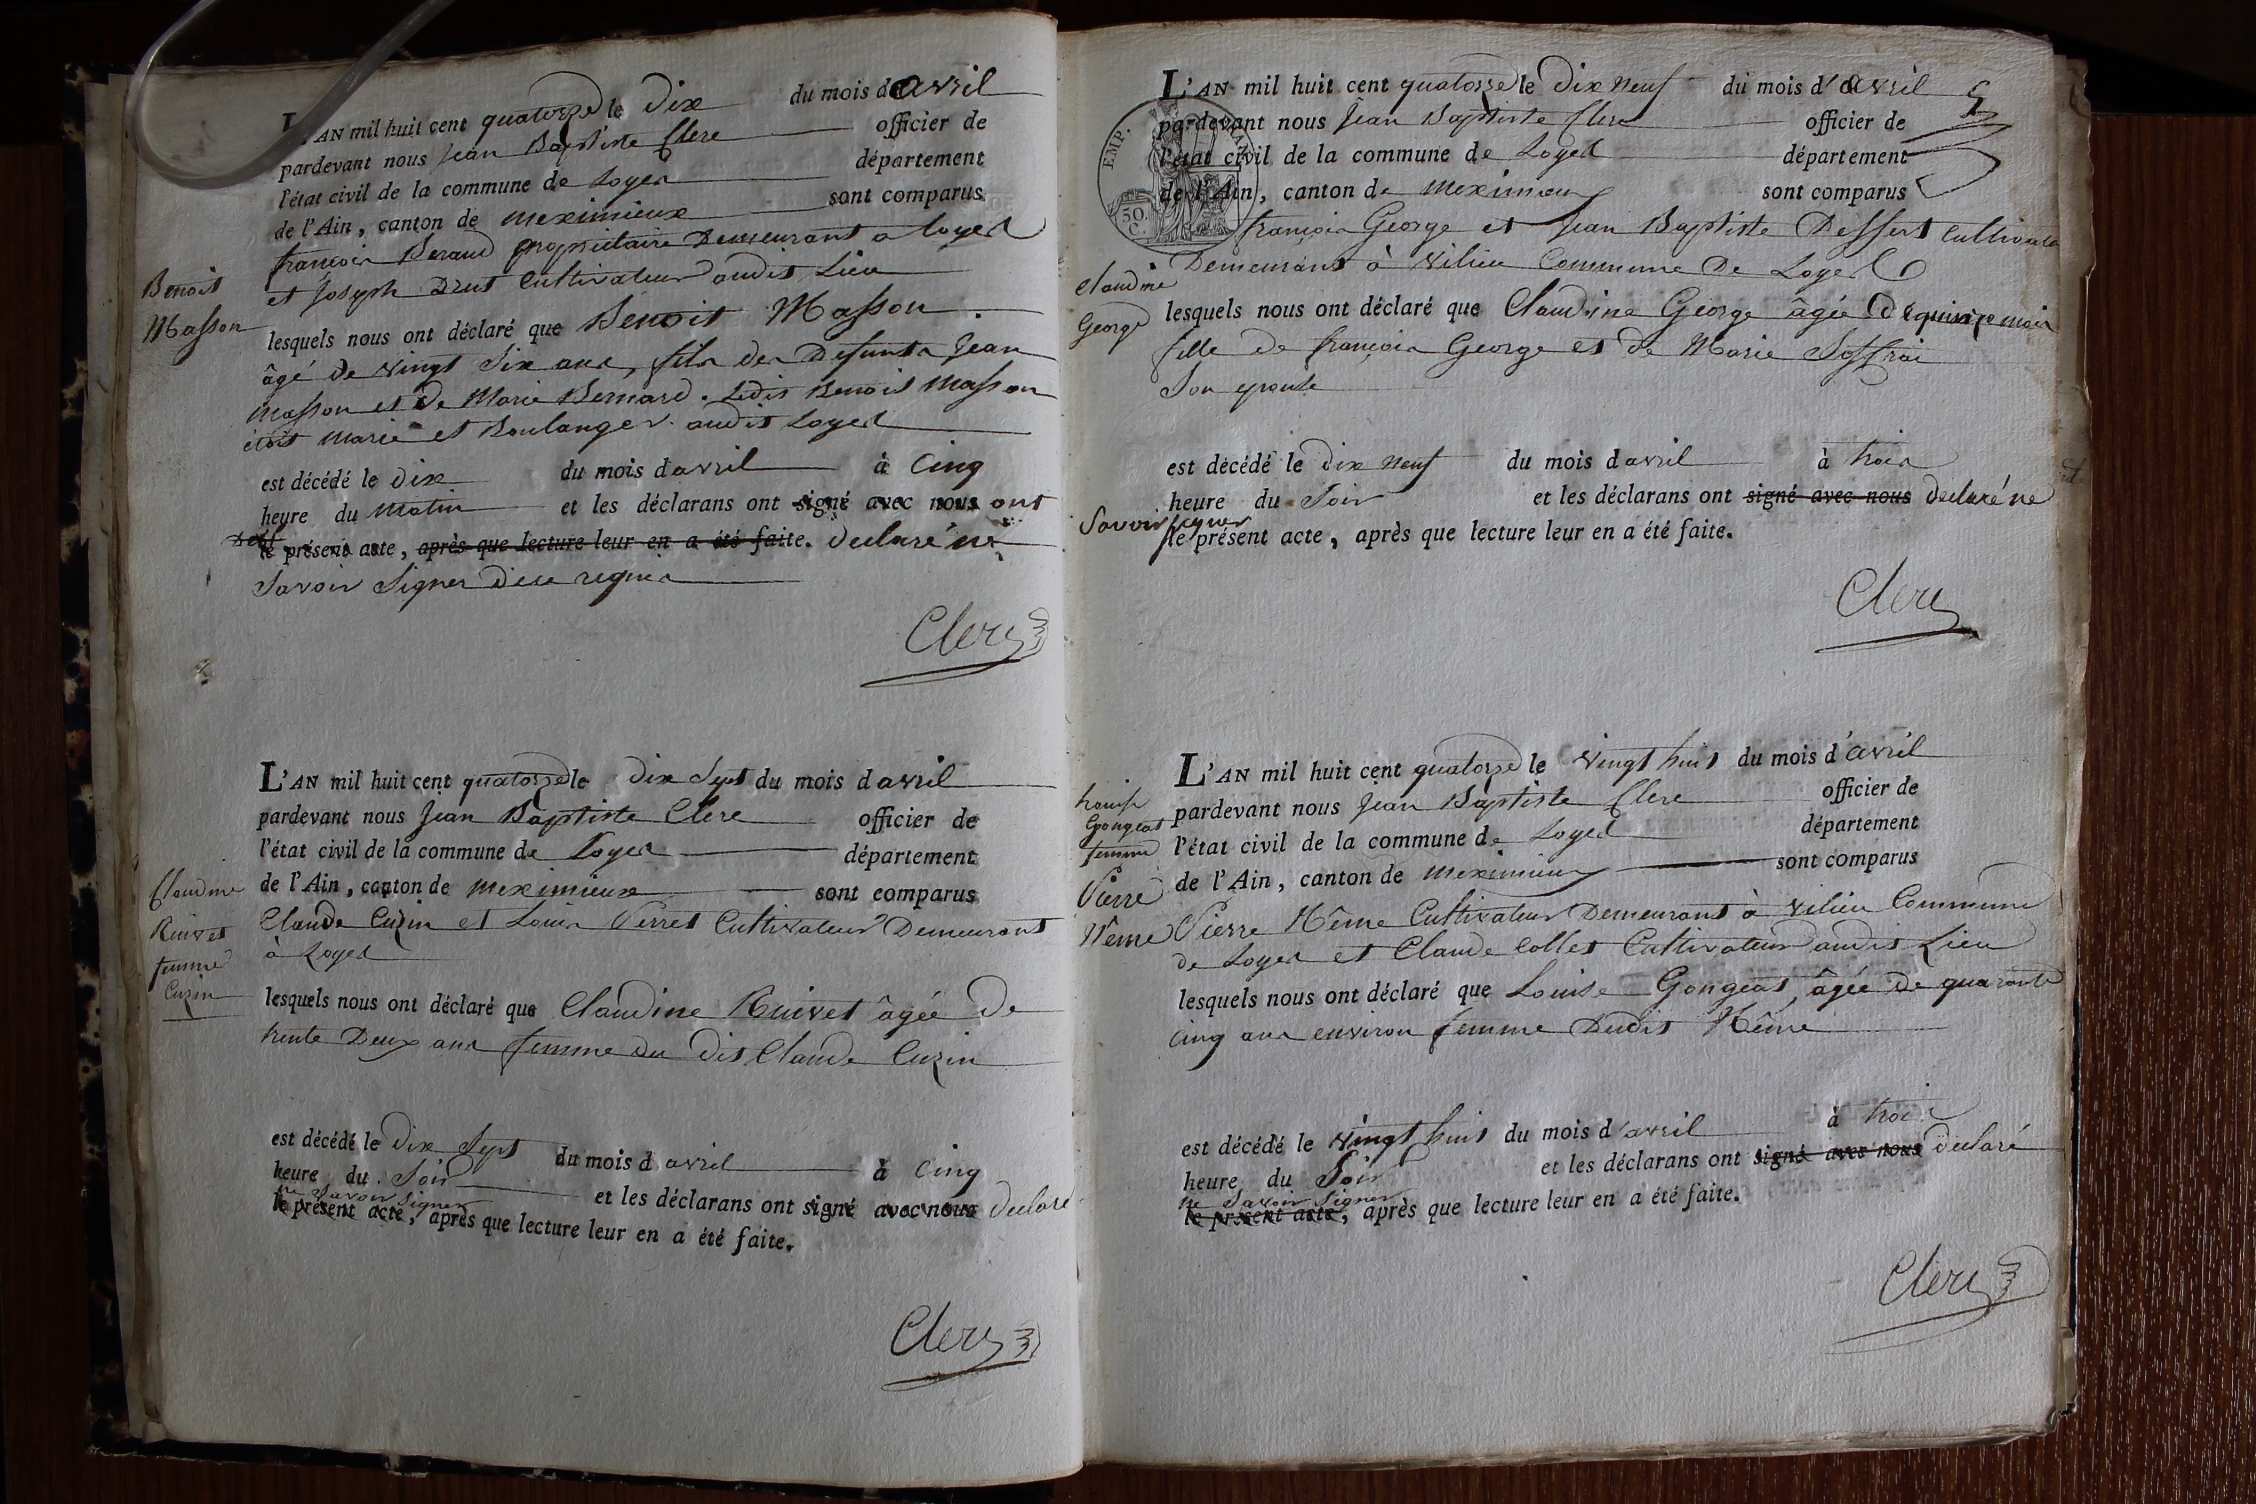 L'AN mil huit cent quatorze le Dix du mois d'avril
pardevant nous Jean Baptiste Clere officier de
l'état civil de la commune de Loyes département
de l'Ain, canton de meximieux sont comparus
françois Beraud propriétaire Demeurant a loyes
et Joseph Drut Cultivateur audit Lieu
Benoit
Masson
lesquels nous ont déclaré que Benoit Masson
âgé de vingt Six ans, fils des Defunts Jean
Masson et de Marie Bernard. Ledit Benoit Masson
étoit Marié et Boulanger audit Loyes
est décédé le dix du mois d'avril à Cinq
heure du Matin et les déclarans ont signé avec nous ont
le présent acte, après que lecture leur en a été faite. declaré ne
Savoir Signer de ce requis
Clere
L'AN mil huit cent quatorze le Dix Sept du mois d'avril
pardevant nous Jean Baptiste Clere officier de
l'état civil de la commune de Loyes département
de l'Ain, canton de meximieux sont comparus
Claude Cuzin et Louis Verret Cultivateur Demeurant
à Loyes
Claudine
Ruivet
femme
Cuzin
lesquels nous ont déclaré que Claudine Ruivet âgée De
trente Deux ans femme du dit Claude Cuzin
est décédé le Dix Sept du mois d'avril à Cinq
heure du Soir et les déclarans ont signé avec nous declaré
ne Savoir Signer
le présent acte, après que lecture leur en a été faite.
Clere
L'AN mil huit cent quatorze le Dix neuf du mois d'avril
pardevant nous Jean Baptiste Clere officier de
l'état civil de la commune de Loyes département
de l'Ain, canton de meximieux sont comparus
EMP.
50.
C.
françois George et Jean Baptiste Dessert Cultivateur
Demeurant à Vilieu Commune De Loyes
Claudine
George
lesquels nous ont déclaré que Claudine George âgée de quinze mois
fille de françois George et de Marie Joffrai
Son epouse
est décédé le dix neuf du mois d'avril à trois
heure du Soir et les déclarans ont signé avec nous declaré ne
Savoir signer
le présent acte, après que lecture leur en a été faite.
Clere
L'AN mil huit cent quatorze le vingt huit du mois d'avril
pardevant nous Jean Baptiste Clere officier de
l'état civil de la commune de Loyes département
de l'Ain, canton de meximieux sont comparus
Louise
Gongeat
femme
Pierre
Nême
Pierre Nême Cultivateur Demeurant à Vilieu Commune
de Loyes et Claude Collet Cultivateur audit Lieu
lesquels nous ont déclaré que Louise Gongeat, âgée de quarante
cinq ans environ femme Dudit Nême
est décédé le vingt huit du mois d'avril à trois
heure du Soir et les déclarans ont signé avec nous declaré
ne Savoir Signer
le présent acte, après que lecture leur en a été faite.
Clere